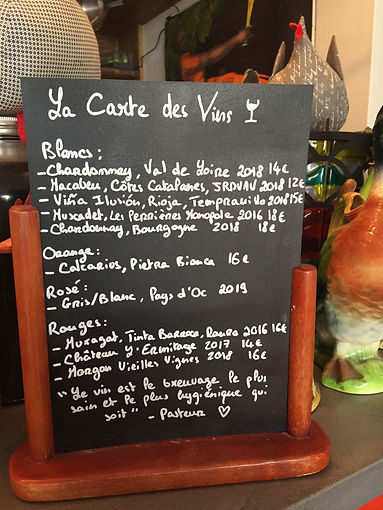 La Carte des Vins
Blancs :
- Chardonnay, Val de Loire 2018 14€
- Macabeu, Côtes Catalanes, 2018 12€
- Viña Ilusión, Rioja, Tempranillo 2018 15€
- Muscadet, Les Perrières Monopole 2016 18€
- Chardonnay, Bourgogne 2018 18€
Orange :
- Calcarius, Pietra Bianca 16€
Rosé :
- Gris/Blanc, Pays d'Oc 2019
Rouges :
- Muragat, Tinta Barroca, 2016 16€
- Château y. Ermitage 2017 14€
- Morgon Vieilles Vignes 2018 16€
"Le vin est le breuvage le plus
sain et le plus hygiénique qui
soit" - Pasteur ♡